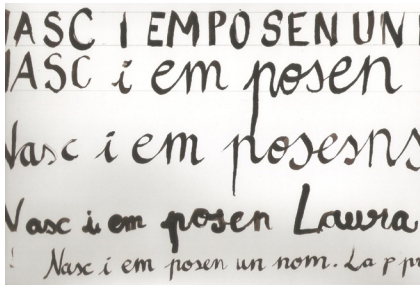 NASC I EMPOSEN UN
NASC i em posen
Nasc i em posesns
Nasc i em posen Laura
Nasc i em posen un nom. La p